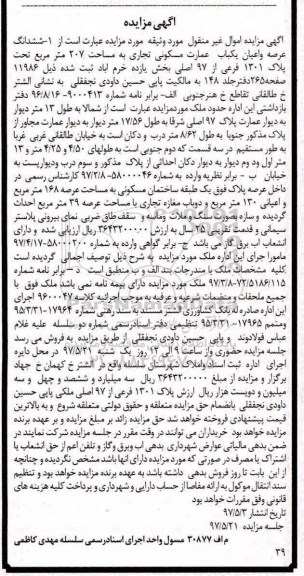 آگهی مزایده
آگهی مزایده اموال غیر منقول مورد وثیقه مورد مزایده عبارت است از ۱- ششدانگ
عرصه واعیان یکباب عمارت مسکونی تجاری به مساحت ۲۰۷ متر مربع تحت
پلاک ۱۳۰۱ فرعی از ۹۷ اصلی بخش یازده خرم اباد ثبت شده ذیل ۱۱۹۸۶
صفحه۲۶۵دفترجلد ۱۴۸ به مالکیت پاپی حسین داودی نجفقلی به نشانی الشتر
خ طالقانی تقاطع خ هنرجنوبی الف- برابر نامه شماره ۹۰۰۴۱۳-۹۶/۸/۱۶ دفتر
بازداشتی این اداره حدود ملک موردمزایده عبارت است از شمالا به طول ۱۳ متر دیوار
به دیوار عمارت پلاک ۹۷ اصلی شرقا به طول ۱۷/۵۶ متر دیوار به دیوار عمارت مجاور از
پلاک مذکور جنوبا به طول ۸/۶۲ متر درب و دکان است به خیابان طالقانی غربی غربا
به طور مستقیم در سه قسمت که دوم جنوبی است به طولهای ۴/۵۰ و ۴/۲۵ متر و ۱۳
متر اول ودوم دیوار به دیوار دکان احداثی از پلاک مذکور و سوم درب ودیواریست به
خیابان ب - برابر نظریه وارده به شماره ۵۸۰۰۰۰۴۶-۹۷/۲/۸ کارشناس رسمی در
داخل عرصه پلاک فوق یک طبقه ساختمان مسکونی به مساحت عرصه ۱۶۸ متر مربع
و اعیانی ۱۳۰ متر مربع و دوباب مغازه تجاری با مساحت عرصه ۳۹ متر مربع احداث
گردیده و سازه بصورت سنگ و ملات وماسه و سقف طاق ضربی نمای بیرونی پلاستر
سیمانی و قدمت تقریبی ۲۵ سال به ارزش ۳۶۴۳۲۰۰۰۰۰ ریال ارزیابی شده و دارای
انشعاب آب برق گاز می باشد ج- برابر گواهی وارده به شماره ۵۸۰۰۰۲۰۰-۹۷/۴/۱۷
مامورا جرای این اداره ملک مورد مزایده به شرح ذیل توصیف اجمالی گردیده است
کلیه مشخصات ملک با مندرجات بند الف و ب منطبق است د- برابر نامه شماره
۷۲/۵۱۸۶/۱۱۵-۹۷/۳/۸ ملک مورد مزایده دارای بیمه نامه نمی باشد ملک فوق با
جمیع ملحقات و منضمات عرفیه و عرفیه به موجب اجرائیه کلاسه ۹۶۰۰۰۴۷ اجرای
این اداره صادره له بانک کشاورزی الشتر مستند به سند رهنی شماره ۱۷۹۶۴-۹۵/۳/۳۱
ومتمم ۱۷۹۶۵-۹۵/۳/۳۱ تنظیمی دفتر اسنادرسمی شماره دو سلسله علیه غلام
عباس فولادوند و پاپی حسین داودی نجفقلی از طریق مزایده به فروش می رسد
جلسه مزایده حضوری واز ساعت ۹ الی ۱۲ روز یک شنبه ۹۷/۵/۲۱ در محل دایره
اجرای اداره ثبت اسناد واملاک شهرستان سلسله واقع در الشتر خ کهمان خ جهاد
برگزار و مزایده از مبلغ ۳۶۴۳۲۰۰۰۰۰ ریال سه میلیارد و ششصد و چهل و سه
میلیون و دویست هزار ریال ارزش پلاک ۱۳۰۱ فرعی از ۹۷ اصلی ملکی پاپی حسین
داودی نجفقلی بانضمام حق مزایده متعلقه و حقوق دولتی متعلقه شروع و به بالاترین
قیمت پیشنهادی فروخته خواهد شد حق مزایده زائد بر مبلغ مزایده و بر عهده برنده
مزایده خواهد بود خریداران می توانند در وقت مقرر در جلسه مزایده شرکت نمایند در
ضمن بدهی مالیاتی عوارض شهرداری بدهی آب وبرق وگاز و تلفن اعم از حق انشعاب یا
اشتراک یا مصرف در صورتی که مورد مزایده دارای انها باشد مشخص نگردیده و چنانچه
از این بابت تا روز فروش بدهی داشته باشد به عهده برنده مزایده خواهد بود و تنظیم
سند انتقال موکول به ارائه مفاصا از حساب دارایی و شهرداری و پرداخت کلیه هزینه های
قانونی وفق مقررات خواهد بود
تاریخ انتشار ۹۷/۵/۳
جلسه مزایده ۹۷/۵/۲۱
م الف ۳۰۸۷۷ مسول واحد اجرای اسنادرسمی سلسله مهدی کاظمی
۳۹